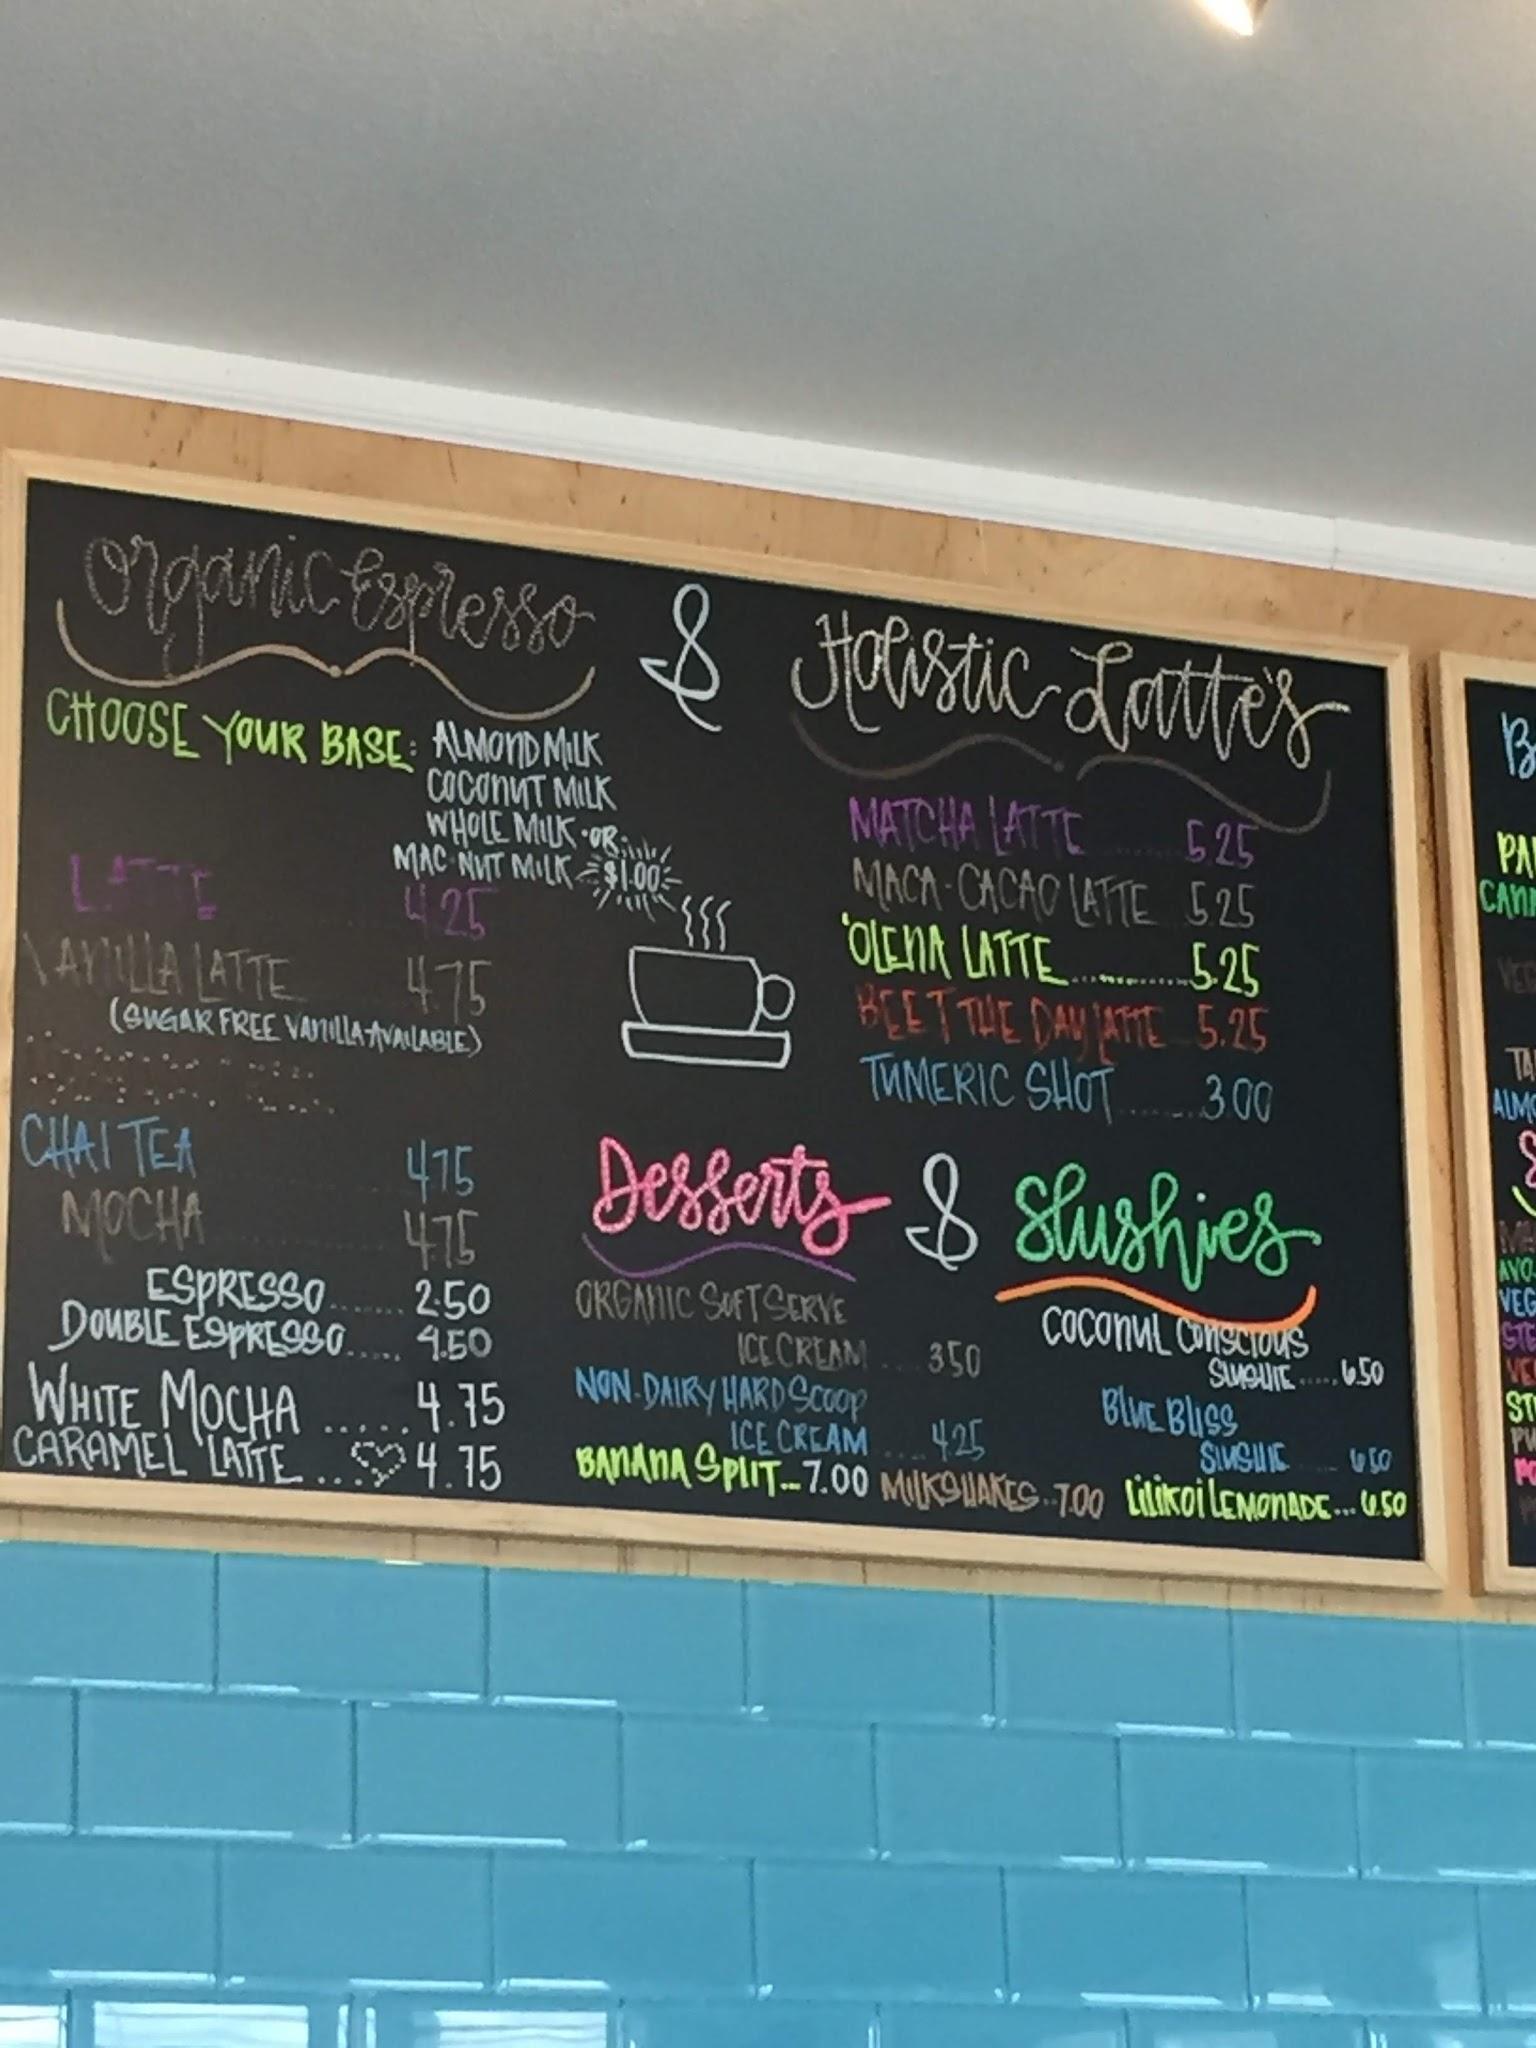 Organic Espresso
&
Holistic Latte's
CHOOSE YOUR BASE: ALMOND MILK
COCONUT MILK
WHOLE MILK · OR
MAC·NUT MILK $1.00
LATTE 4.25
VANILLA LATTE 4.75
(SUGAR FREE VANILLA AVAILABLE)
CHAI TEA 4.75
MOCHA 4.75
ESPRESSO....... 2.50
DOUBLE ESPRESSO..... 4.50
WHITE MOCHA ..... 4.75
CARAMEL LATTE ... 4.75
MATCHA LATTE 5.25
MACA-CACAO LATTE 5.25
'OLENA LATTE ......... 5.25
BEET THE DAY LATTE 5.25
TUMERIC SHOT ........ 3.00
Desserts
&
Slushies
ORGANIC SOFT SERVE
ICE CREAM .... 3.50
NON-DAIRY HARD SCOOP
ICE CREAM .... 4.25
BANANA SPLIT... 7.00
MILKSHAKES..7.00
COCONUT CONSCIOUS
SLUSHIE .....6.50
BLUE BLISS
SLUSHIE ..... 6.50
LILIKOI LEMONADE... 6.50